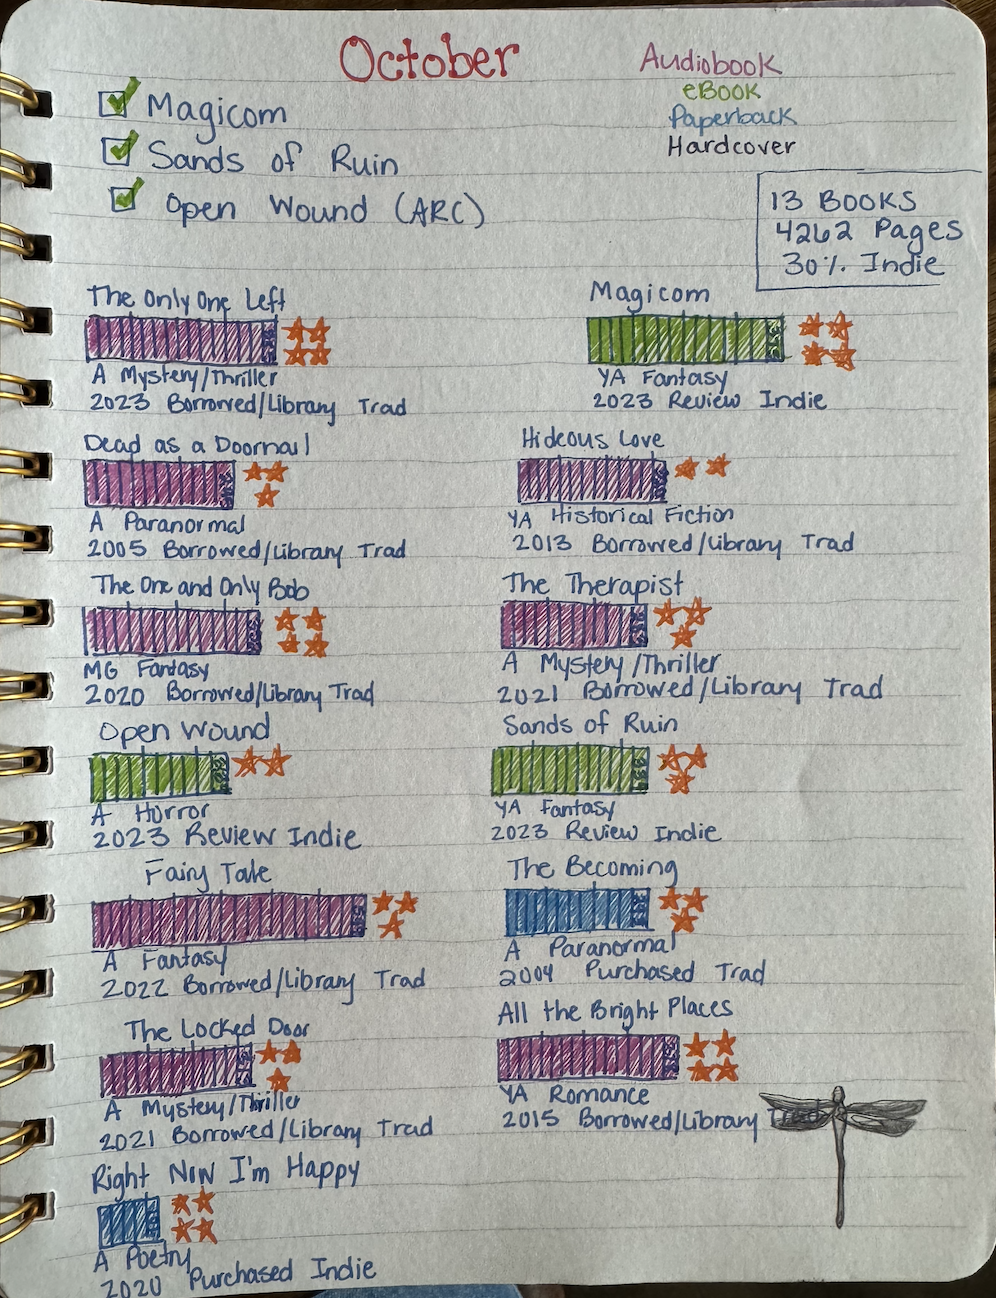 October
Audiobook
eBook
Paperback
Hardcover
Magicom
Sands of Ruin
Open Wound (ARC)
13 BOOKS
4262 Pages
30% Indie
The Only One Left
A Mystery/Thriller
2023 Borrowed/Library Trad
Magicom
YA Fantasy
2023 Review Indie
Dead as a Doornail
A Paranormal
2005 Borrowed/Library Trad
Hideous Love
YA Historical Fiction
2013 Borrowed/Library Trad
The One and Only Bob
MG Fantasy
2020 Borrowed/Library Trad
The Therapist
A Mystery/Thriller
2021 Borrowed/Library Trad
Open Wound
A Horror
2023 Review Indie
Sands of Ruin
YA Fantasy
2023 Review Indie
Fairy Tale
A Fantasy
2022 Borrowed/Library Trad
The Becoming
A Paranormal
2004 Purchased Trad
The Locked Door
A Mystery/Thriller
2021 Borrowed/Library Trad
All the Bright Places
YA Romance
2015 Borrowed/Library Trad
Right Now I'm Happy
A Poetry
2020 Purchased Indie